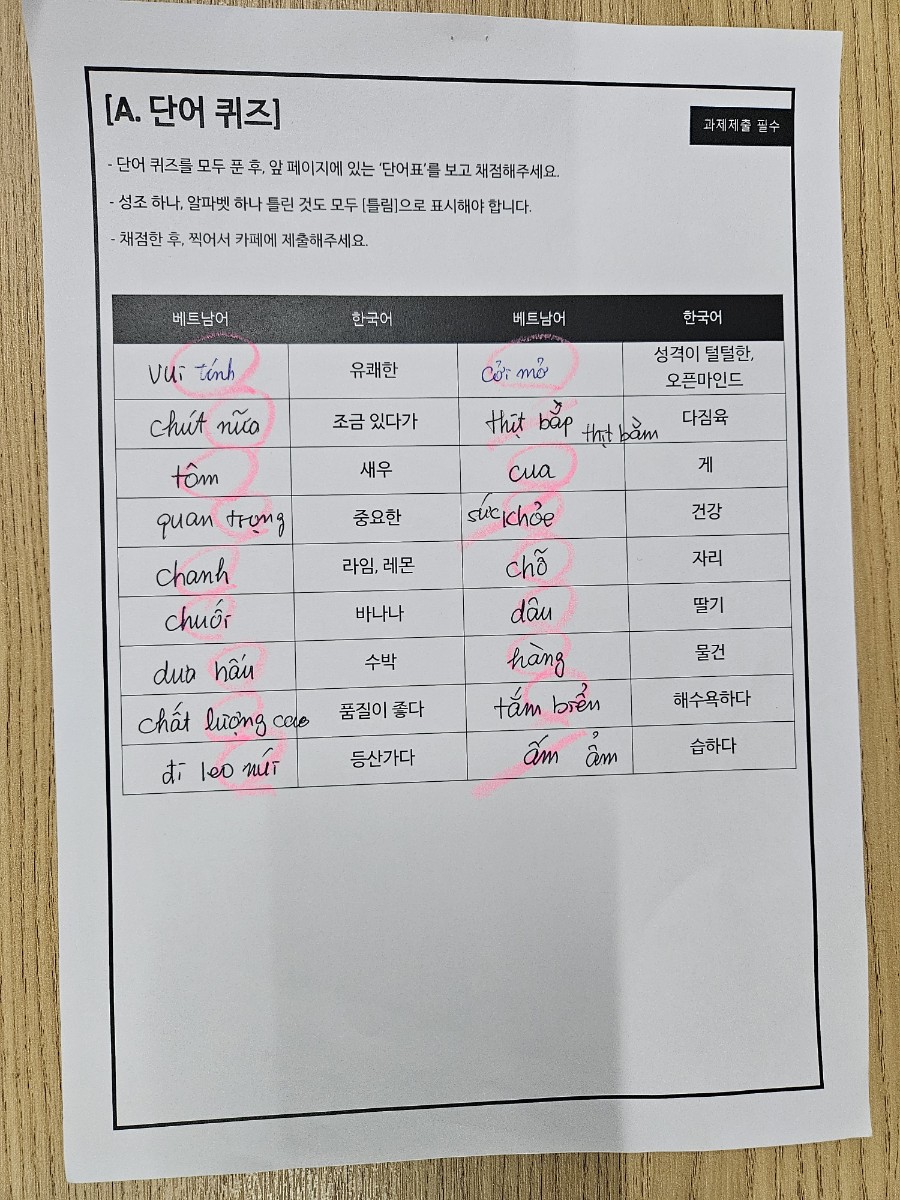 [A. 단어 퀴즈]
과제제출 필수
- 단어 퀴즈를 모두 푼 후, 앞 페이지에 있는 '단어표'를 보고 채점해주세요.
- 성조 하나, 알파벳 하나 틀린 것도 모두 [틀림]으로 표시해야 합니다.
- 채점한 후, 찍어서 카페에 제출해주세요.
베트남어 한국어 베트남어 한국어
vui tính 유쾌한 cởi mở 성격이 털털한,
오픈마인드
chút nữa 조금 있다가 thịt bắp thịt bằm 다짐육
tôm 새우 cua 게
quan trọng 중요한 sức khỏe 건강
chanh 라임, 레몬 chỗ 자리
chuối 바나나 dâu 딸기
dưa hấu 수박 hàng 물건
chất lượng cao 품질이 좋다 tắm biển 해수욕하다
đi leo núi 등산가다 ấm ẩm 습하다